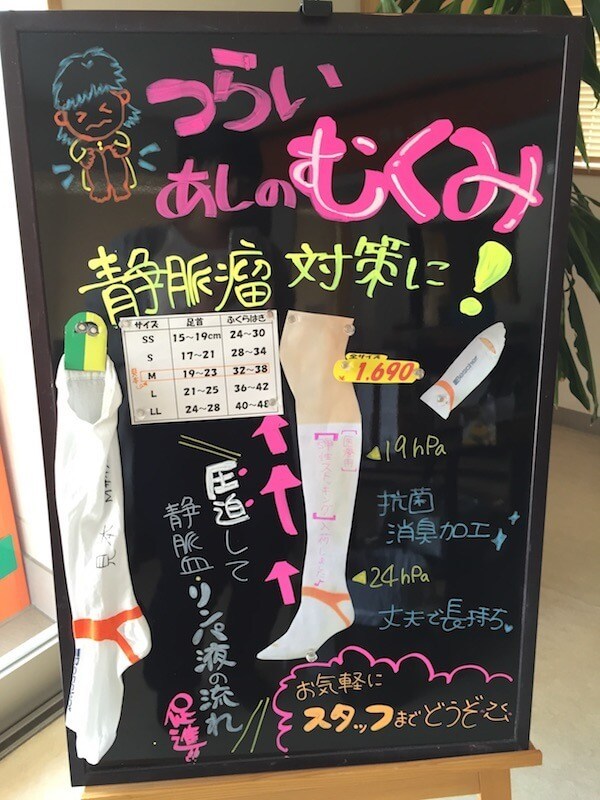 つらい
あしのむくみ
静脈瘤 対策に!
サイズ 足首 ふくらはぎ
SS 15～19cm 24～30
S 17～21 28～34
M 19～23 32～38
L 21～25 36～42
LL 24～28 40～48
全サイズ
1.690
19hPa
抗菌
消臭加工
24hPa
丈夫で長持ち
圧迫して
静脈血・リンパ液の流れ
促進!!
見本
お気軽に
スタッフまでどうぞ